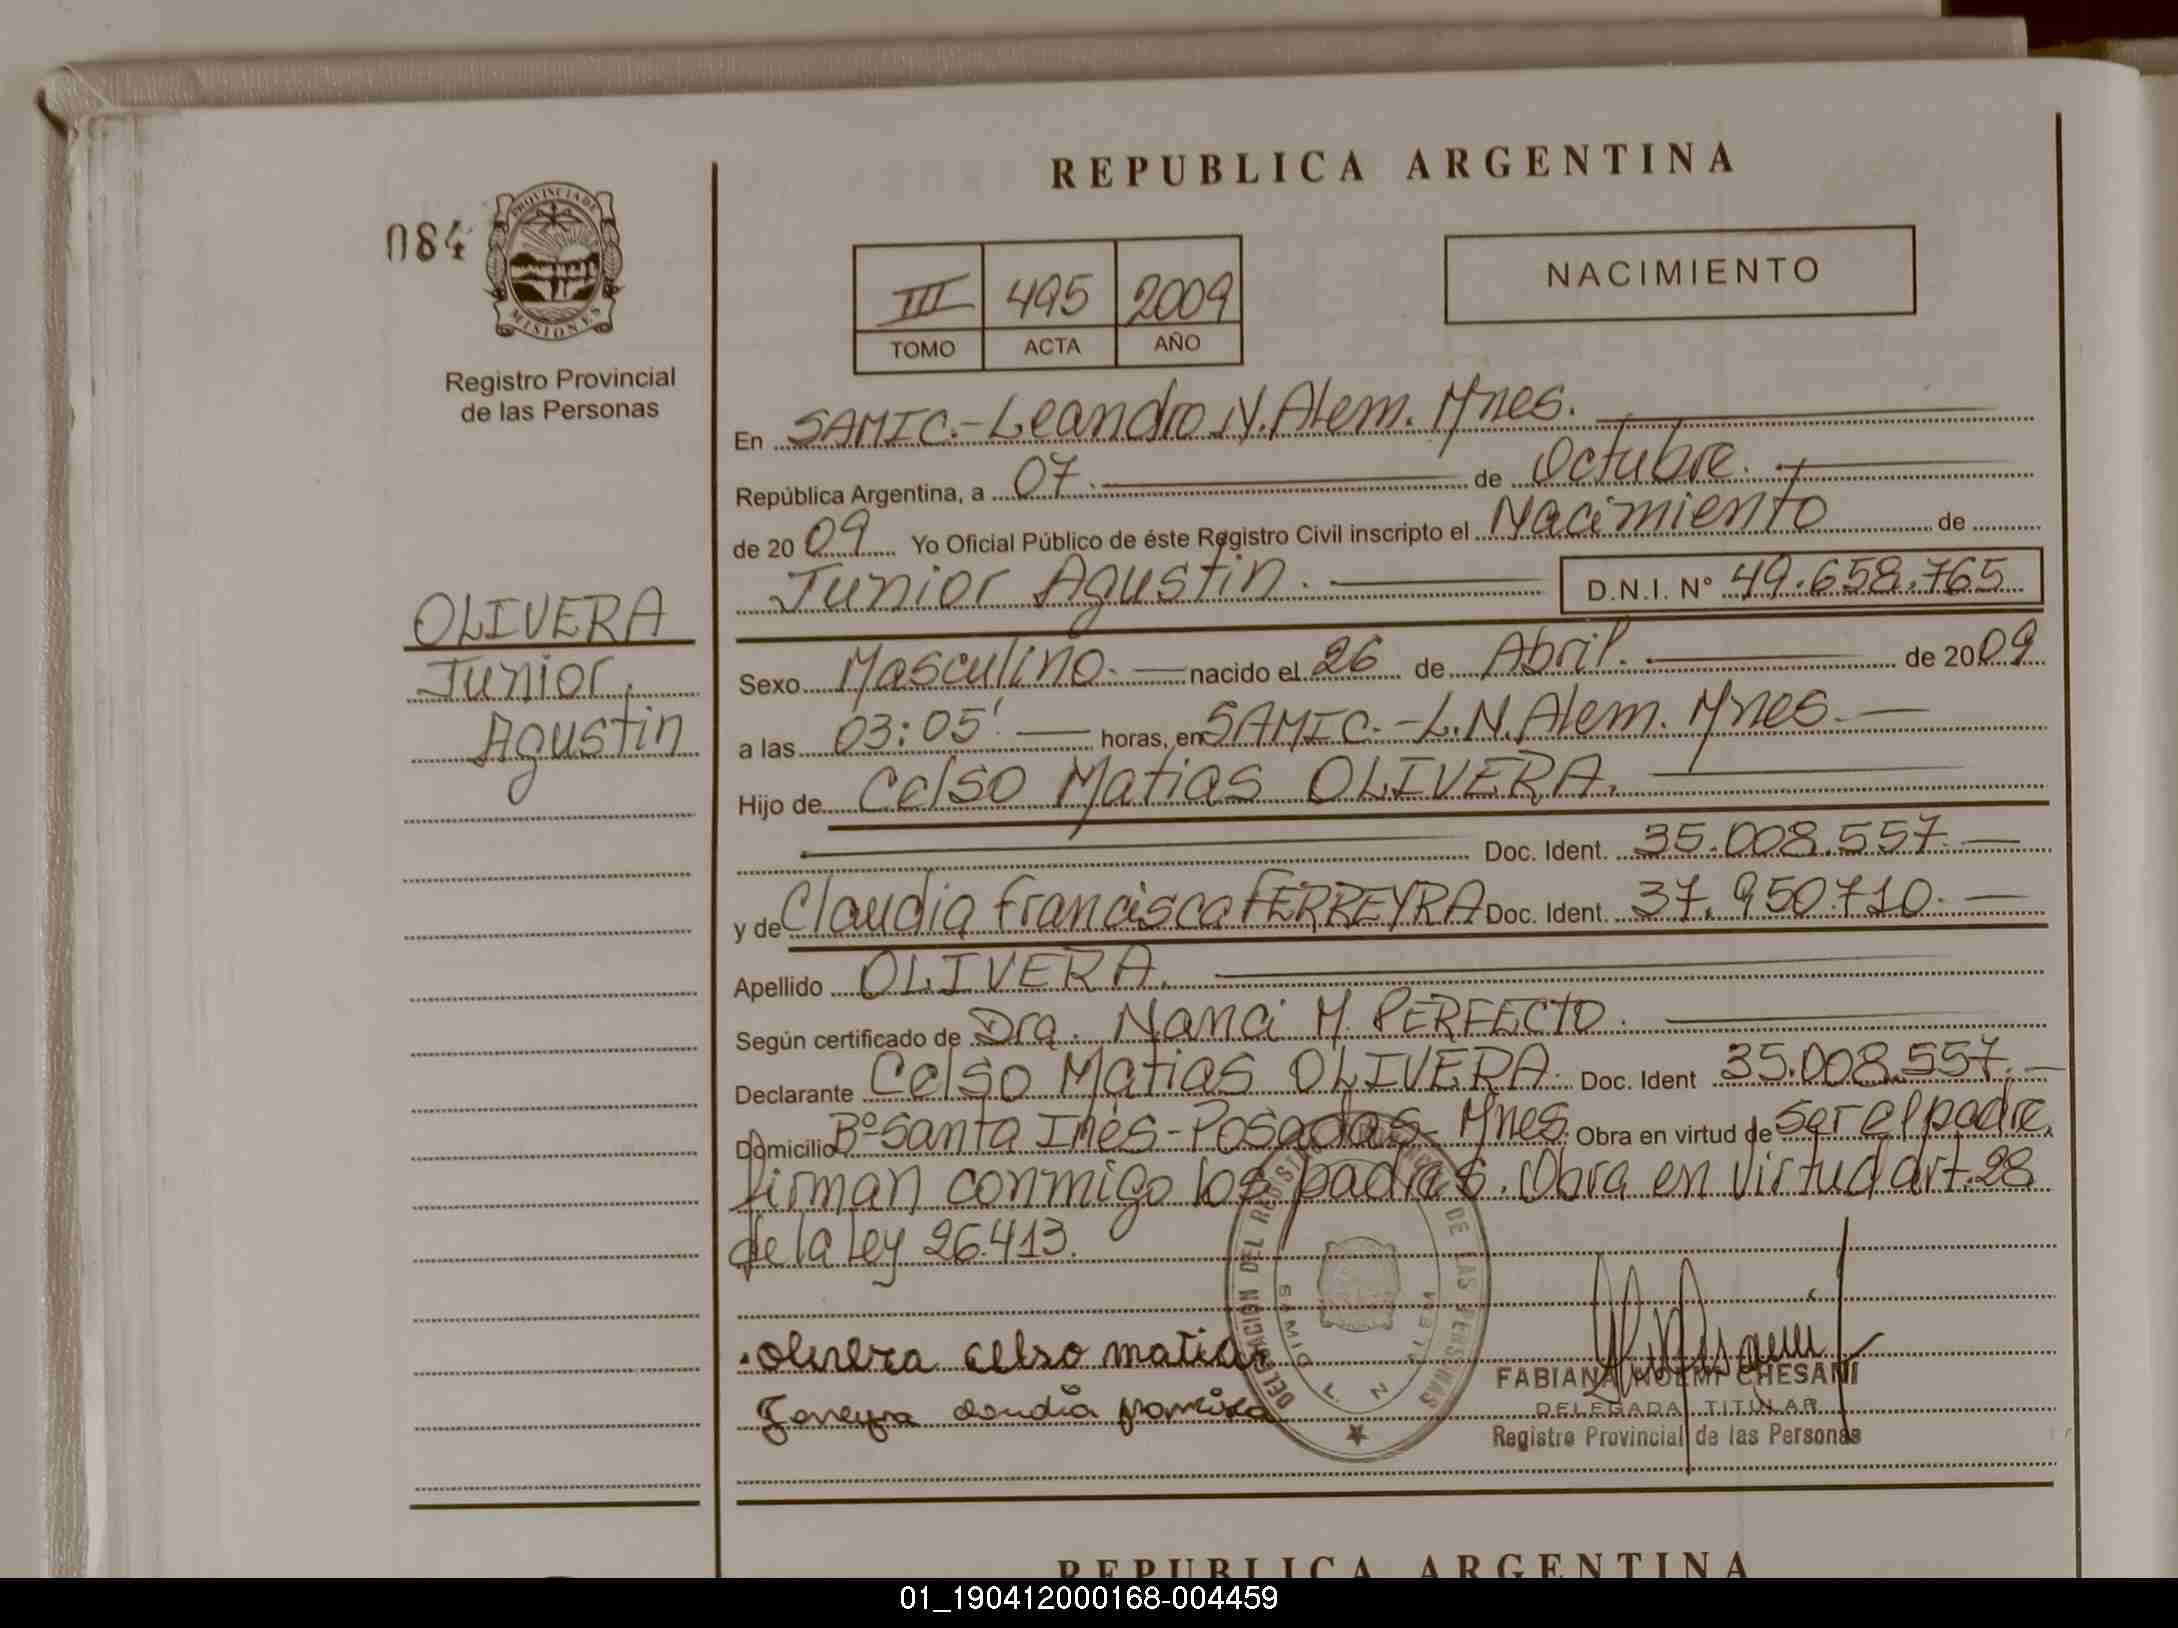 REPUBLICA ARGENTINA
084
PROVINCIA DE
MISIONES
Registro Provincial
de las Personas
III 495 2009
TOMO ACTA AÑO
NACIMIENTO
OLIVERA
Junior
Agustin
En SAMIC.-Leandro N. Alem. Mnes.
República Argentina, a 07. de Octubre.
de 2009 Yo Oficial Público de éste Registro Civil inscripto el Nacimiento de
Junior Agustin. D.N.I. N° 49.658.765
Sexo Masculino. nacido el 26 de Abril. de 2009
a las 03:05' horas, en SAMIC.-L.N.Alem. Mnes.
Hijo de Celso Matias OLIVERA.
Doc. Ident. 35.008.557.
y de Claudia Francisca FERREYRA Doc. Ident. 37.950.710.
Apellido OLIVERA.
Según certificado de Dra. Nanci M. PERFECTO.
Declarante Celso Matias OLIVERA. Doc. Ident 35.008.557.
Domicilio Bº Santa Inés-Posadas- Mnes. Obra en virtud de ser el padre,
firman conmigo los padres. Obra en virtud art. 28
de la ley 26.413.
DELEGACION DEL REGISTRO DE LAS PERSONAS
SAMIC L. N. ALEM
olivera celso matias
Ferreyra claudia francisca
FABIANA NOEMI CHESANI
DELEGADA TITULAR
Registro Provincial de las Personas
REPUBLICA ARGENTINA
01_190412000168-004459